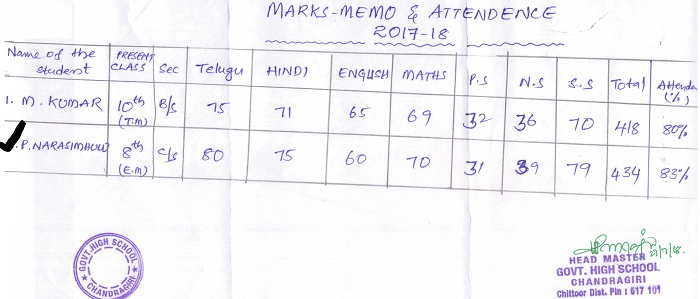 MARKS-MEMO & ATTENDENCE
2017-18
Name of the student PRESENT CLASS Sec Telugu HINDI ENGLISH MATHS P.S N.S S.S Total Attenda (%)
1. M. KUMAR 10th (T.M) B/S 75 71 65 69 32 36 70 418 80%
P. NARASIMHULU 8th (E.M) C/S 80 75 60 70 31 39 79 434 83%
GOVT. HIGH SCHOOL
CHANDRAGIRI
HEAD MASTER
GOVT. HIGH SCHOOL
CHANDRAGIRI
Chittoor Dist. Pin : 517 101